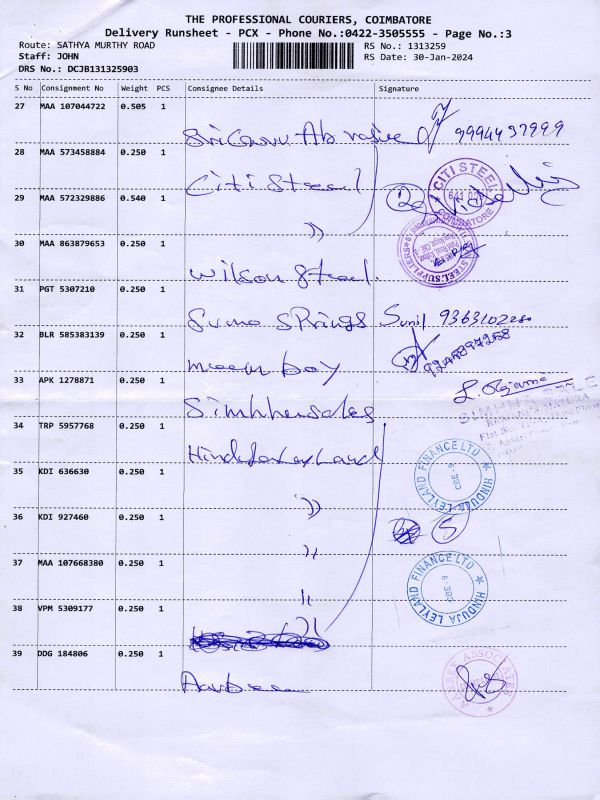 THE PROFESSIONAL COURIERS, COIMBATORE
Delivery Runsheet - PCX - Phone No.:0422-3505555 - Page No.:3
Route: SATHYA MURTHY ROAD RS No.: 1313259
Staff: JOHN RS Date: 30-Jan-2024
DRS No.: DCJB131325903
S No Consignment No Weight PCS Consignee Details Signature
27 MAA 107044722 0.505 1
9994437999
28 MAA 573458884 0.250 1
Citi Steel
CITI STEEL
COIMBATORE
29 MAA 572329886 0.540 1
"
30 MAA 863879653 0.250 1
Wilson Steel.
STEEL SUPPLIERS
31 PGT 5307210 0.250 1
Suma Springs Sunil 9363102280
32 BLR 585383139 0.250 1
33 APK 1278871 0.250 1
34 TRP 5957768 0.250 1
HINDUJA LEYLAND FINANCE LTD
CBE - 9
35 KDI 636630 0.250 1
"
36 KDI 927460 0.250 1
" 5
37 MAA 107668380 0.250 1
"
HINDUJA LEYLAND FINANCE LTD
CBE - 9
38 VPM 5309177 0.250 1
"
39 DDG 184806 0.250 1
ASSOCIATES